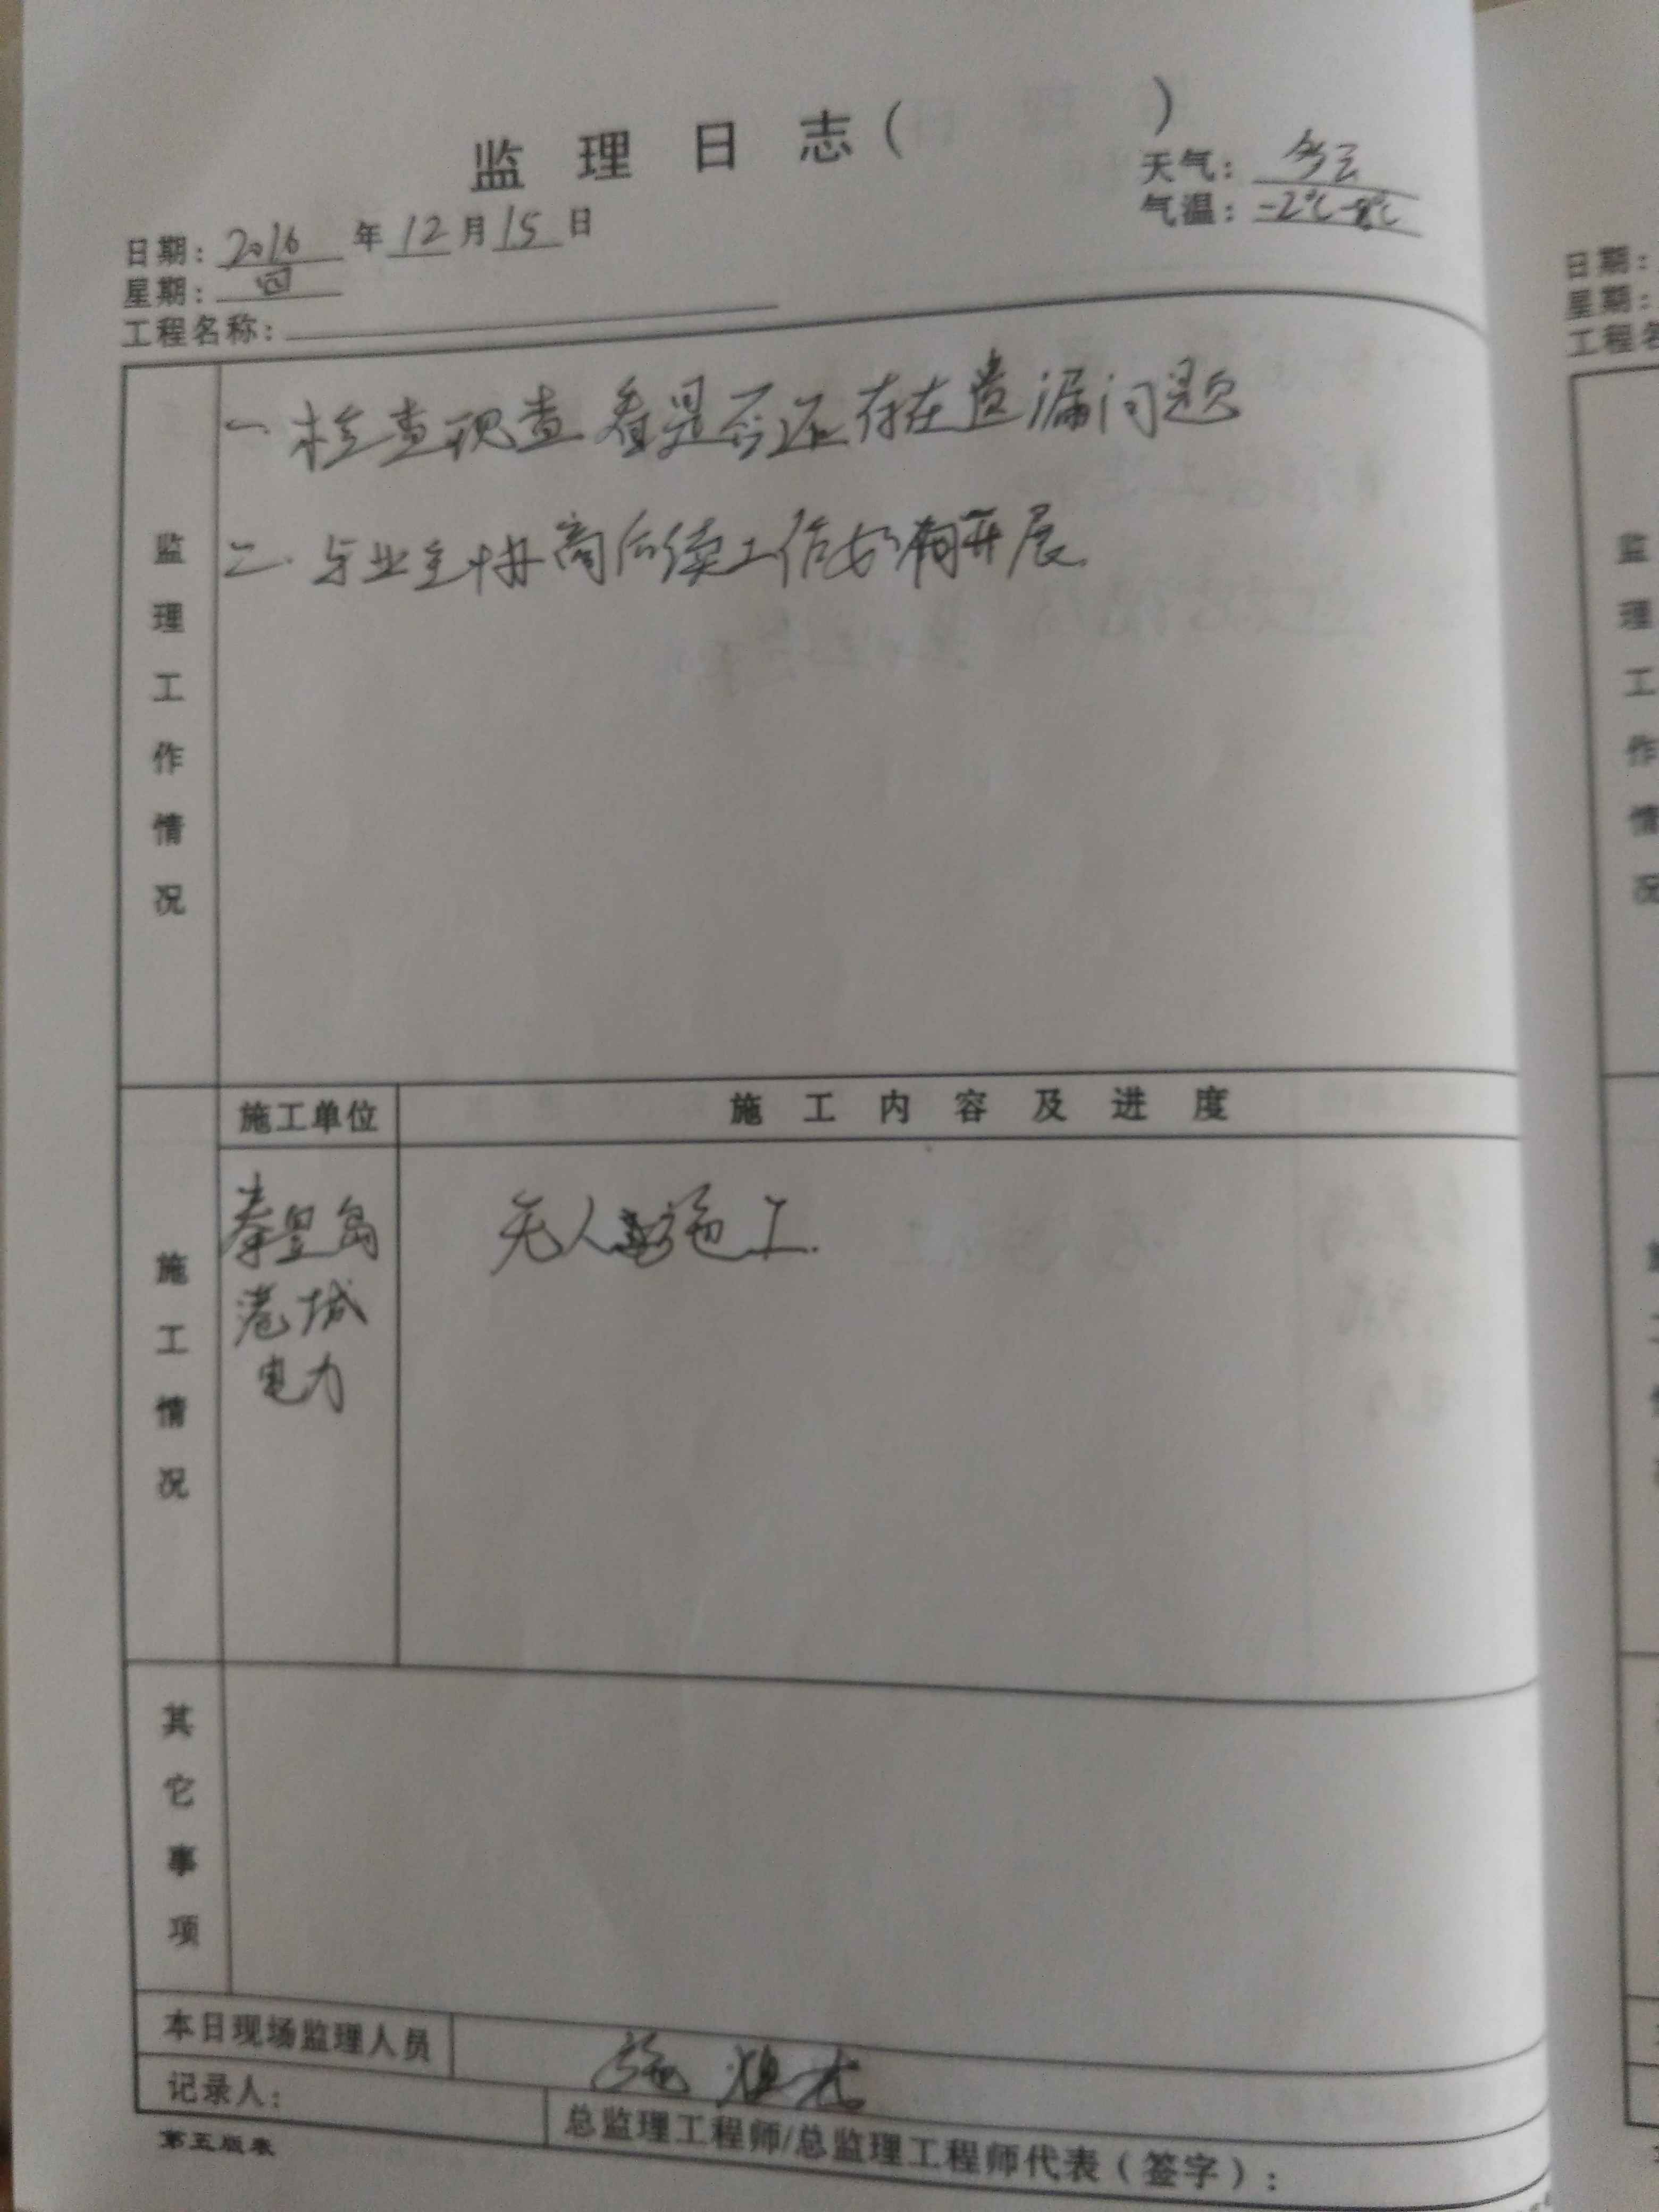 监理日志（ ）
天气：多云
气温：-2℃-8℃
日期：2016年12月15日
星期：四
工程名称：
监理工作情况
一 检查现查看是否还存在遗漏问题
二. 与业主协商后续工作如何开展
施工情况
施工单位
施工内容及进度
秦皇岛
港城
电力
无人施工.
其它事项
本日现场监理人员
施
记录人：
总监理工程师/总监理工程师代表（签字）：
第五版表
日期：
星期：
工程名
监
理
工
作
情
况